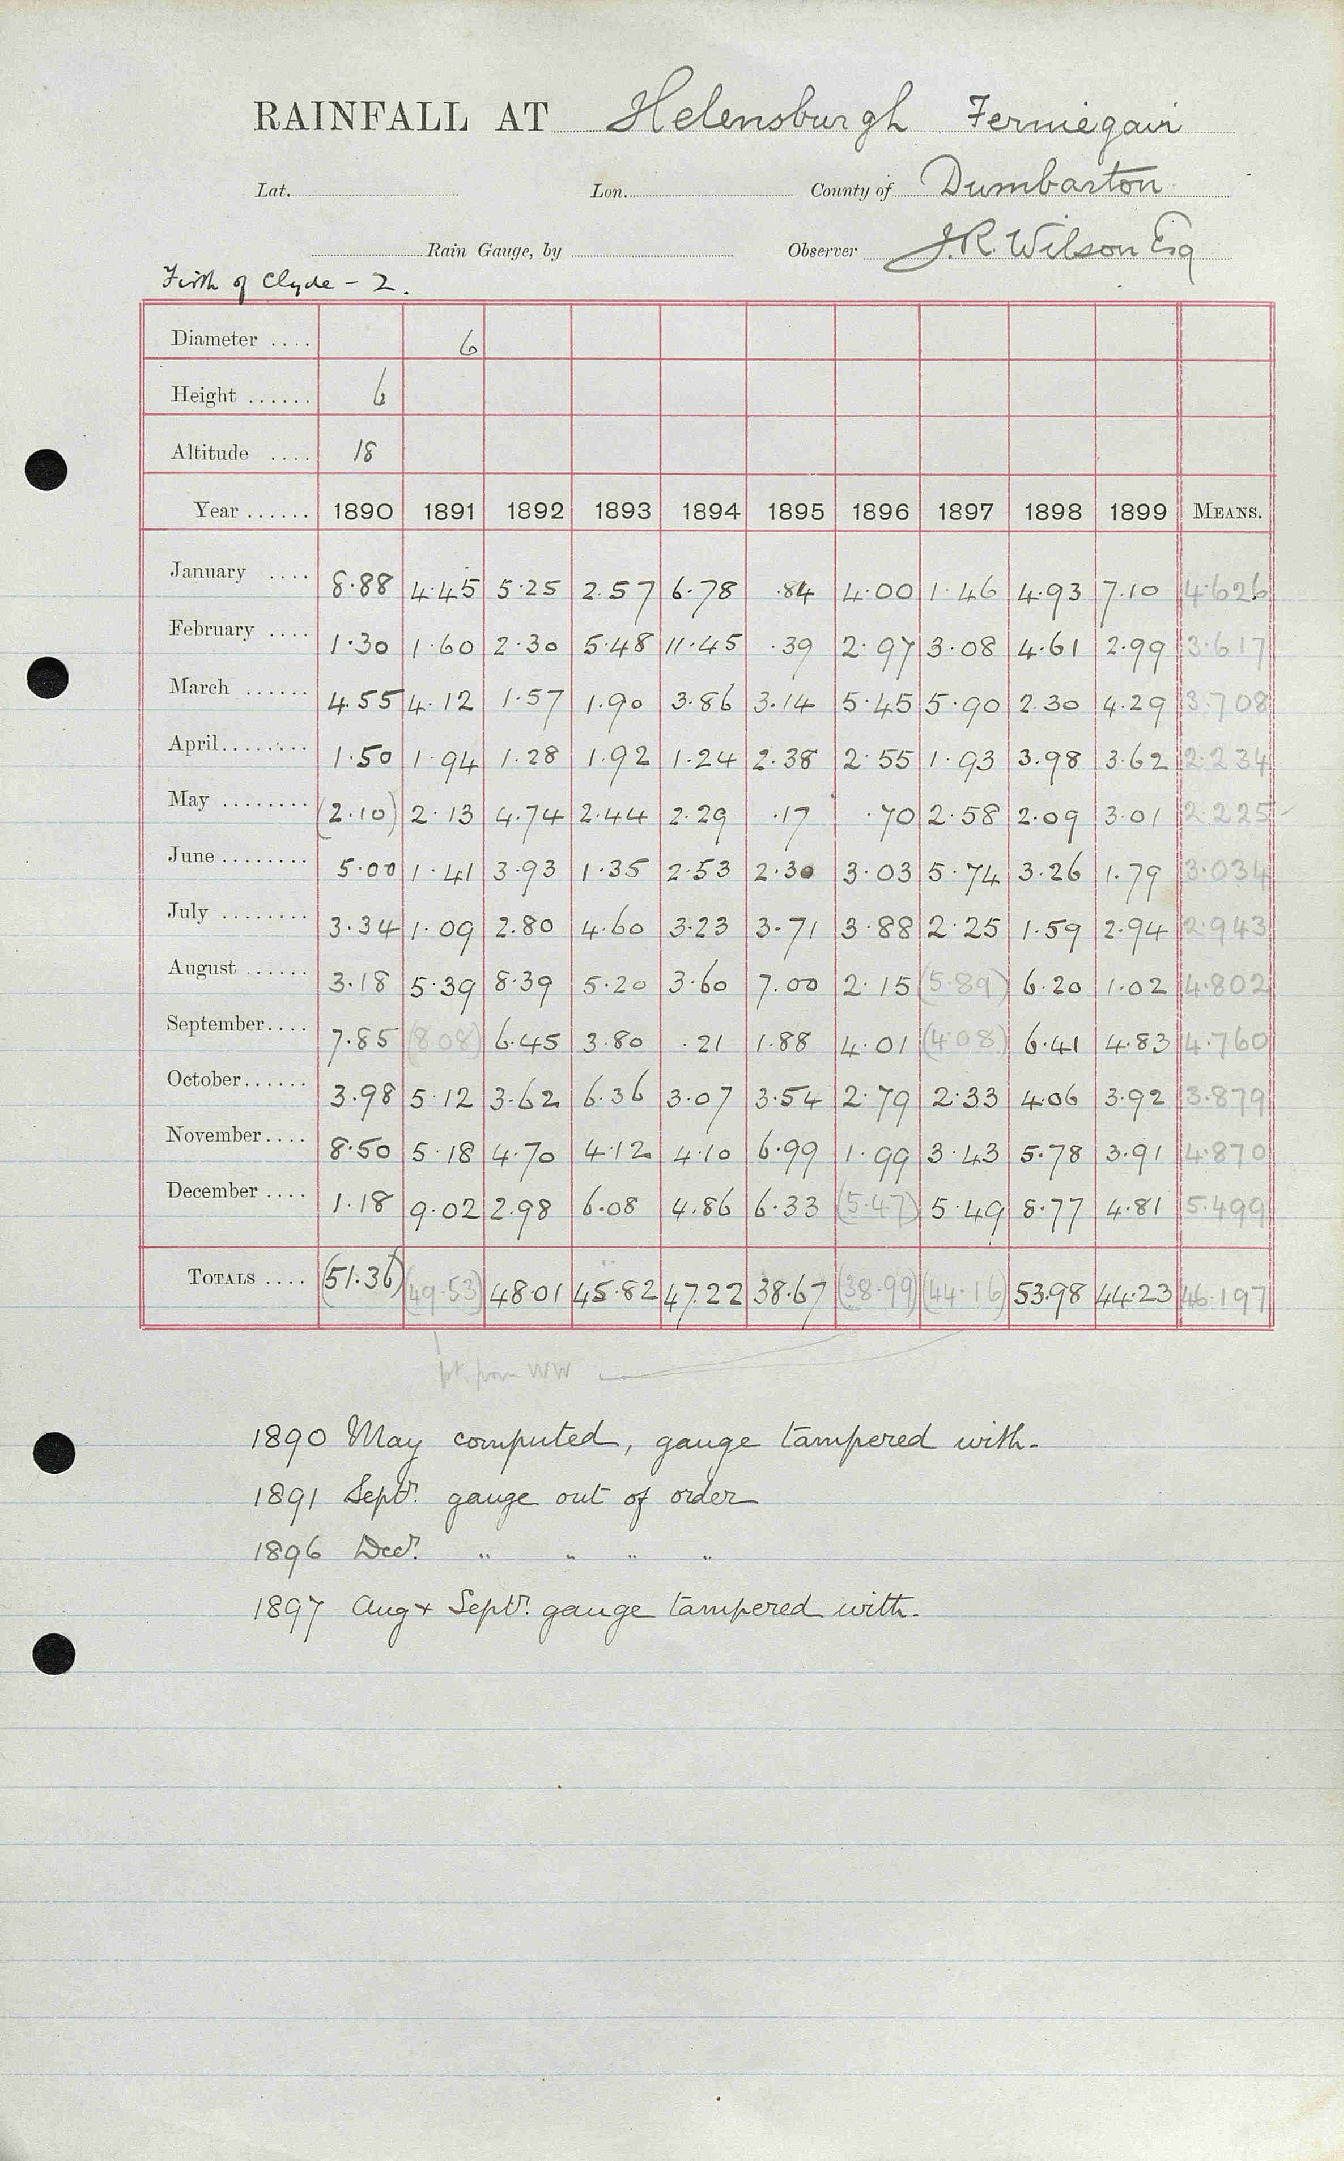 RAINFALL AT Helensburgh Ferniegair
Lat. Lon. County of Dumbarton
Rain Gauge, by Observer J.R. Wilson Esq
Firth of Clyde - 2.
Diameter .... 6
Height ...... 6
Altitude .... 18
Year ...... 1890 1891 1892 1893 1894 1895 1896 1897 1898 1899 MEANS.
January .... 8.88 4.45 5.25 2.57 6.78 .84 4.00 1.46 4.93 7.10 4.626
February .... 1.30 1.60 2.30 5.48 11.45 .39 2.97 3.08 4.61 2.99 3.617
March ...... 4.55 4.12 1.57 1.90 3.86 3.14 5.45 5.90 2.30 4.29 3.708
April........ 1.50 1.94 1.28 1.92 1.24 2.38 2.55 1.93 3.98 3.62 2.234
May ........ (2.10) 2.13 4.74 2.44 2.29 .17 .70 2.58 2.09 3.01 2.225
June ........ 5.00 1.41 3.93 1.35 2.53 2.30 3.03 5.74 3.26 1.79 3.034
July ........ 3.34 1.09 2.80 4.60 3.23 3.71 3.88 2.25 1.59 2.94 2.943
August ...... 3.18 5.39 8.39 5.20 3.60 7.00 2.15 (5.89) 6.20 1.02 4.802
September.... 7.85 (8.08) 6.45 3.80 .21 1.88 4.01 (4.08) 6.41 4.83 4.760
October...... 3.98 5.12 3.62 6.36 3.07 3.54 2.79 2.33 4.06 3.92 3.879
November.... 8.50 5.18 4.70 4.12 4.10 6.99 1.99 3.43 5.78 3.91 4.870
December .... 1.18 9.02 2.98 6.08 4.86 6.33 (5.47) 5.49 8.77 4.81 5.499
TOTALS .... (51.36) (49.53) 48.01 45.82 47.22 38.67 (38.99) (44.16) 53.98 44.23 46.197
from WW
1890 May computed, gauge tampered with.
1891 Septr. gauge out of order
1896 Decr. " " " "
1897 Aug + Septr. gauge tampered with.